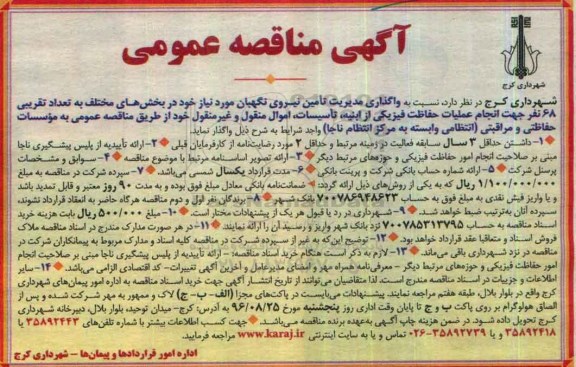 آگهی مناقصه عمومی
شهرداری کرج
شهرداری کرج در نظر دارد، نسبت به واگذاری مدیریت تامین نیروی نگهبان مورد نیاز خود در بخش‌های مختلف به تعداد تقریبی
۶۸ نفر جهت انجام عملیات حفاظت فیزیکی از ابنیه، تأسیسات، اموال منقول و غیرمنقول خود از طریق مناقصه عمومی به مؤسسات
حفاظتی و مراقبتی (انتظامی وابسته به مرکز انتظام ناجا) واجد شرایط به شرح ذیل واگذار نماید.
۱- داشتن حداقل ۳ سال سابقه فعالیت در زمینه مرتبط و حداقل ۲ مورد رضایت‌نامه از کارفرمایان قبلی ۲- ارائه تأییدیه از پلیس پیشگیری ناجا
مبنی بر صلاحیت انجام امور حفاظت فیزیکی و حوزه‌های مرتبط دیگر ۳- ارائه تصویر اساسنامه مرتبط با موضوع مناقصه ۴- سوابق و مشخصات
پرسنل شرکت ۵- ارائه شماره حساب بانکی شرکت و پرینت بانکی ۶- مدت قرارداد یکسال شمسی می‌باشد. ۷- سپرده شرکت در مناقصه به مبلغ
۱/۱۰۰/۰۰۰/۰۰۰ ریال که به یکی از روش‌های ذیل ارائه گردد: ضمانت‌نامه بانکی معادل مبلغ فوق بوده و به مدت ۹۰ روز معتبر و قابل تمدید باشد
و یا واریز فیش نقدی به مبلغ فوق به حساب ۷۰۰۷۸۶۹۴۸۶۲۳ بانک شهر ۸- برندگان نفر اول و دوم مناقصه هرگاه حاضر به انعقاد قرارداد نشوند،
سپرده آنان به‌ترتیب ضبط خواهد شد. ۹- شهرداری در رد یا قبول هر یک از پیشنهادات مختار است. ۱۰- مبلغ ۵۰۰/۰۰۰ ریال بابت هزینه خرید
اسناد مناقصه به حساب ۷۰۰۷۸۵۳۱۳۷۹۵ نزد بانک شهر واریز و رسید آن را ارائه نمایند. ۱۱- در هر صورت مدارک مندرج در اسناد مناقصه ملاک
فروش اسناد و متعاقبا عقد قرارداد خواهد بود. ۱۲- توضیح این که به غیر از سپرده شرکت در مناقصه کلیه اسناد و مدارک مربوط به پیمانکاران شرکت در
مناقصه در نزد شهرداری باقی می‌ماند. ۱۳- لازم به ذکر است هنگام خرید اسناد مناقصه: - ارائه تأییدیه از پلیس پیشگیری ناجا مبنی بر صلاحیت انجام
امور حفاظت فیزیکی و حوزه‌های مرتبط دیگر - معرفی‌نامه همراه مهر و امضای مدیرعامل و آخرین آگهی تغییرات - کد اقتصادی الزامی می‌باشد. ۱۴- سایر
اطلاعات و جزییات در اسناد مناقصه مندرج است. لذا متقاضیان می‌توانند از تاریخ انتشار آگهی جهت خرید اسناد مناقصه به اداره امور پیمان‌های شهرداری
کرج واقع در بلوار بلال، طبقه هفتم مراجعه نمایند. پیشنهادات می‌بایست در پاکت‌های مجزا (الف - ب - ج) لاک و ممهور به مهر شرکت شده و پس از
الصاق هولوگرام بر روی پاکت ب و ج تا پایان وقت اداری روز پنجشنبه مورخ ۹۶/۰۸/۲۵ به آدرس: کرج- میدان توحید، بلوار بلال، دبیرخانه شهرداری
کرج تحویل داده شود. در ضمن هزینه چاپ آگهی به‌عهده برنده مناقصه می‌باشد. جهت کسب اطلاعات بیشتر با شماره تلفن‌های ۳۵۸۹۲۴۴۳ یا
۳۵۸۹۲۴۱۸ و یا ۳۵۸۹۲۷۳۹-۰۲۶ تماس و یا به سایت اینترنتی www.karaj.ir مراجعه فرمایید.
اداره امور قراردادها و پیمان‌ها - شهرداری کرج